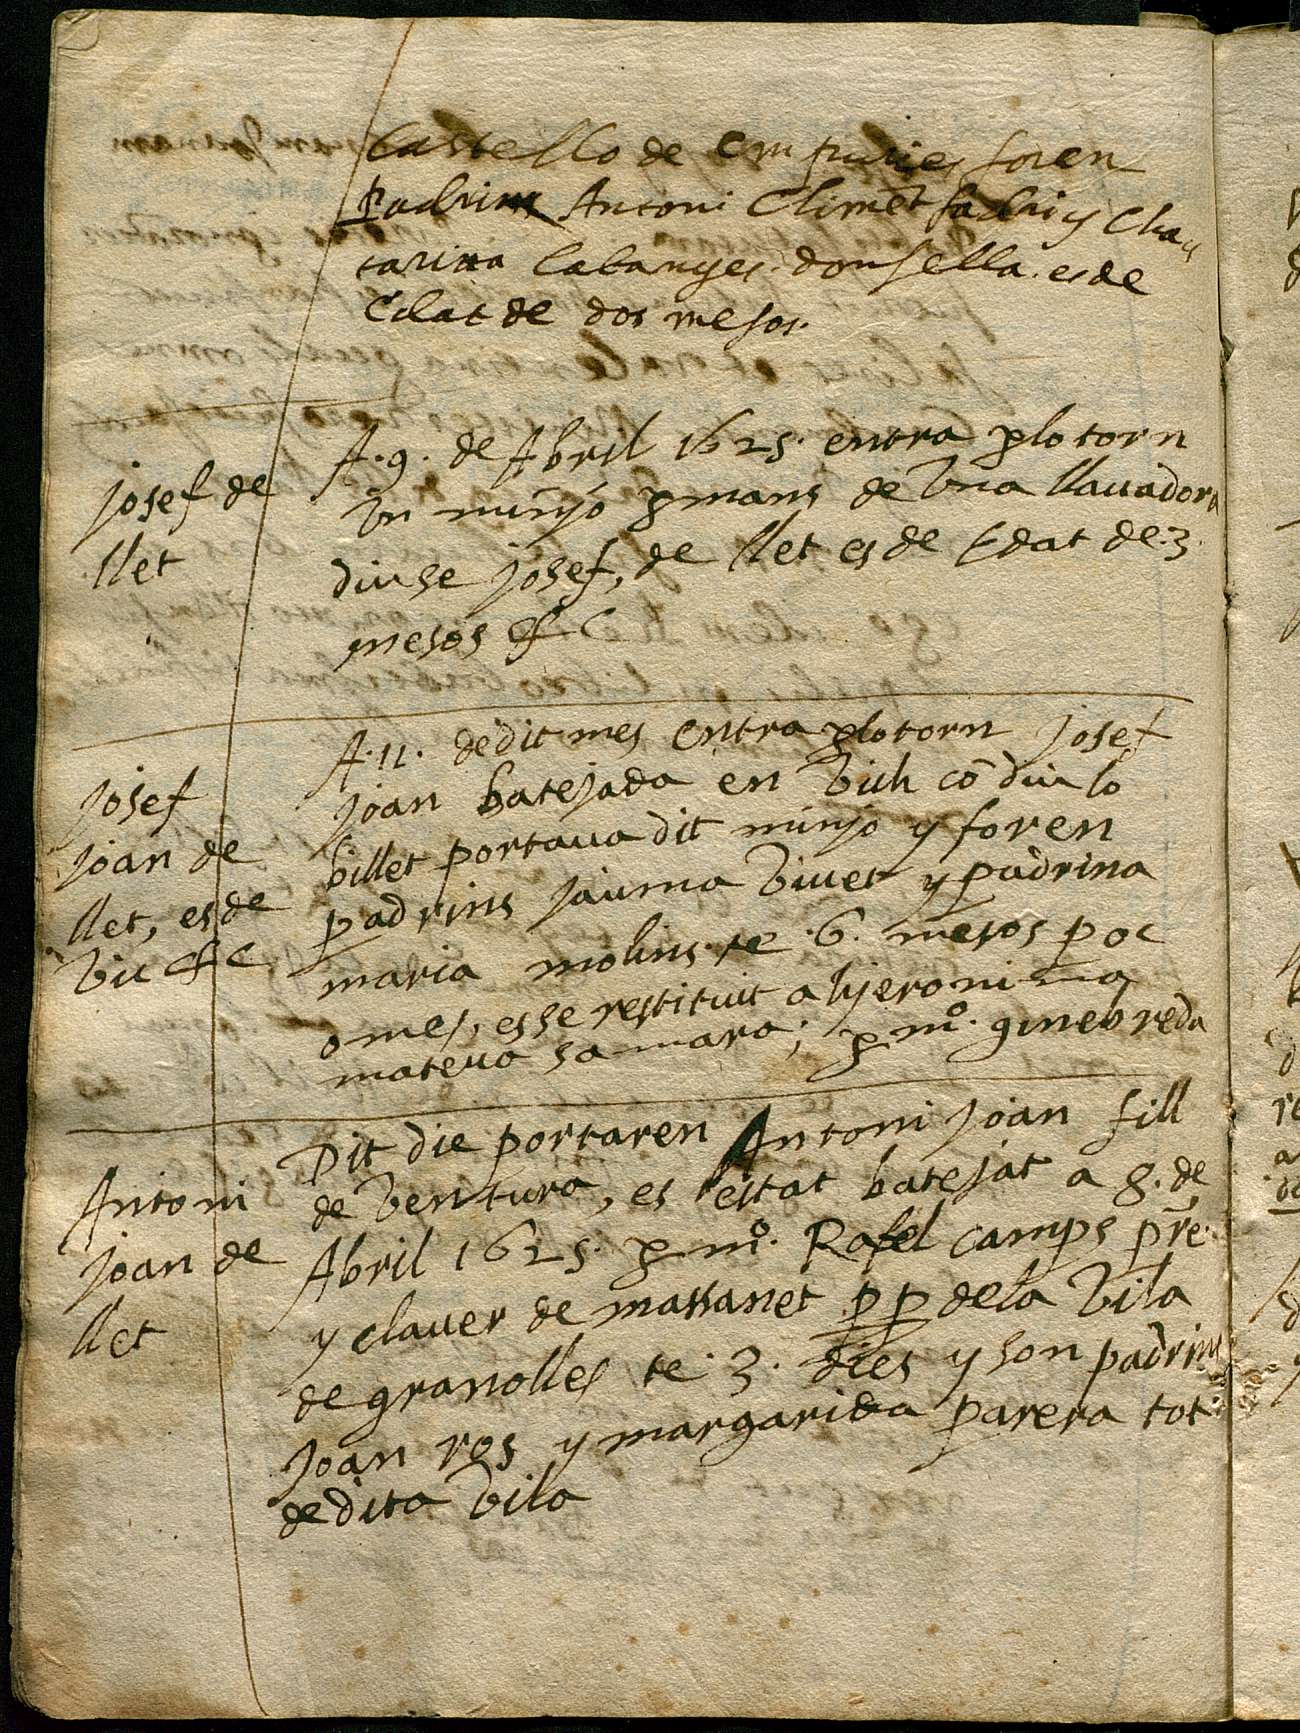 Castello de Empuries foren
Padrins Antoni Climēt fadri y Cha
tarina Cabanyes donsella es de
Edat de dos mesos.
josef de
llet
A.9. de Abril 1625. entra ꝑlo torn
Vn minyo ꝑ mans de Vna llauadora
diuse josef, de llet es de Edat de .3.
mesos &c
josef
joan de
llet, es de
Vic &c
A.11. de dit mes entra ꝑlo torn josef
joan batejada en Vich cō diu lo
billet portaua dit minyo y foren
padrins jauma Viuet y padrina
maria molins te .6. mesos poc
o mes, es se restituit a hjeronima
mateua sa mara; ꝑ mº. ginebreda
Antoni
joan de
llet
Dit die portaren Antoni joan fill
de Ventura, es estat batejat a 8. de
Abril 1625. ꝑ mº. Rafel camps pr̄e.
y clauer de massanet ꝑꝑ dela Vila
de granolles te .3. dies y son padrins
joan ros y margarida parera tot
de dita Vila